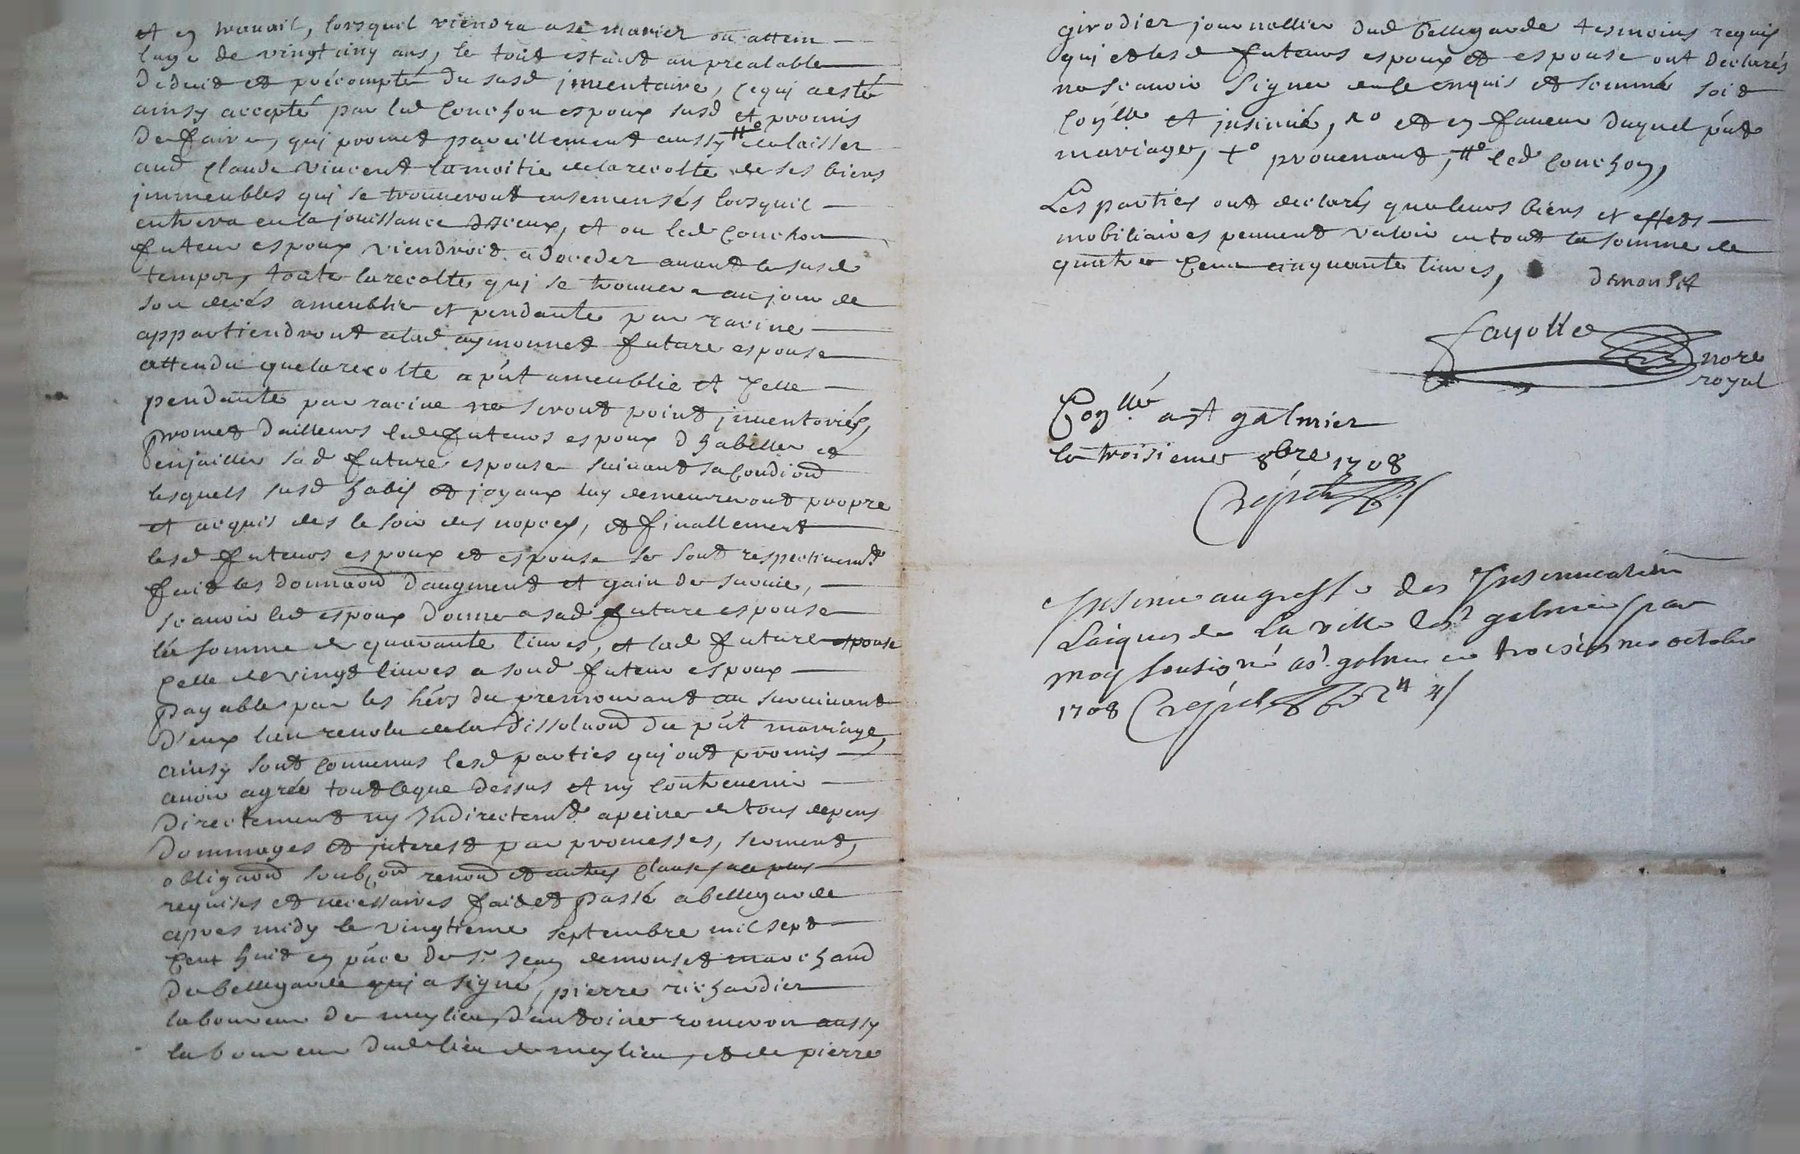 et en travail, lorsquil viendra a se marier ou attein
lage de vingt cinq ans, le tout estant au prealable
deduit et precompté du susd inventaire, ce qui a esté
ainsy accepté par led Couchon espoux susd et promis
de faire, qui promet pareillement aussy #o delaisser
aud Claude vincent la moitie de la recolte de ses biens
immeubles qui se trouueront ensemensés lorsquil
entrera en la jouissance d'iceux, et ou led Couchon
futeur espoux viendroit a deceder auant le susd
temps, toute la recolte qui se trouuera au jour de
son decés ameublie et pendante par racine
appartiendront a lad aymonnet future espouse
attendu que la recolte a pñt ameublie et celle
pendante par racine ne seront point inventoriés,
promet dailleurs led futeurs espoux d'habiller et
enjailler sad future espouse suiuant sa condiond
lesquels susd habis et joyaux luy demeureront propre
et acquis des le soir des nopces, et finallement
lesd futeurs espoux et espouse se sont respectiuemt
fait les donnaond d'augment et gain de suruie,
scauoir led espoux donne a sad future espouse
la somme de quarante liures, et lad future espouse
celle de vingt liures a sond futeur espoux
payable par les hérs du premourant au suruiuant
d'eux lan reuolu de la dissoluond du pñt mariage,
ainsy sont conuenus lesd parties qui ont promis
auoir agréé tout ce que dessus et ny contreuenir
directement ny indirectemt a peine de tous depens
dommages et interest par promesses, serment,
obligaond soubond renond et autres clauses
requises et necessaires fait et passé a bellegarde
apres midy le vingtieme septembre mil sept
cent huit en pñce de sr jean demonset marchand
de bellegarde qui a signé, pierre richardier
laboureur de meylieu, d'antoine romeron aussy
laboureur dud lieu de meylieu, et de pierre
girodier journallier dud bellegarde tesmoins requis
qui et lesd futeurs espoux et espouse ont declarés
ne scauoir signer de ce enquis et sommé soit
coñllé et insinué, et en faueur duquel pñt
mariage, +o prouenant, #o led Couchon,
Les parties ont declarés que leurs biens et effets
mobiliaires peuuent valoir en tout la somme de
quatre cent cinquante liures,
demonset
fayolle
nore
royal
Coñllé a st galmier
le troisieme 8bre 1708
Insinué au greffe des Insinuations
Laiques de La ville de st galmier par
moy soussigné a st galmier ce troisiesme octobre
1708